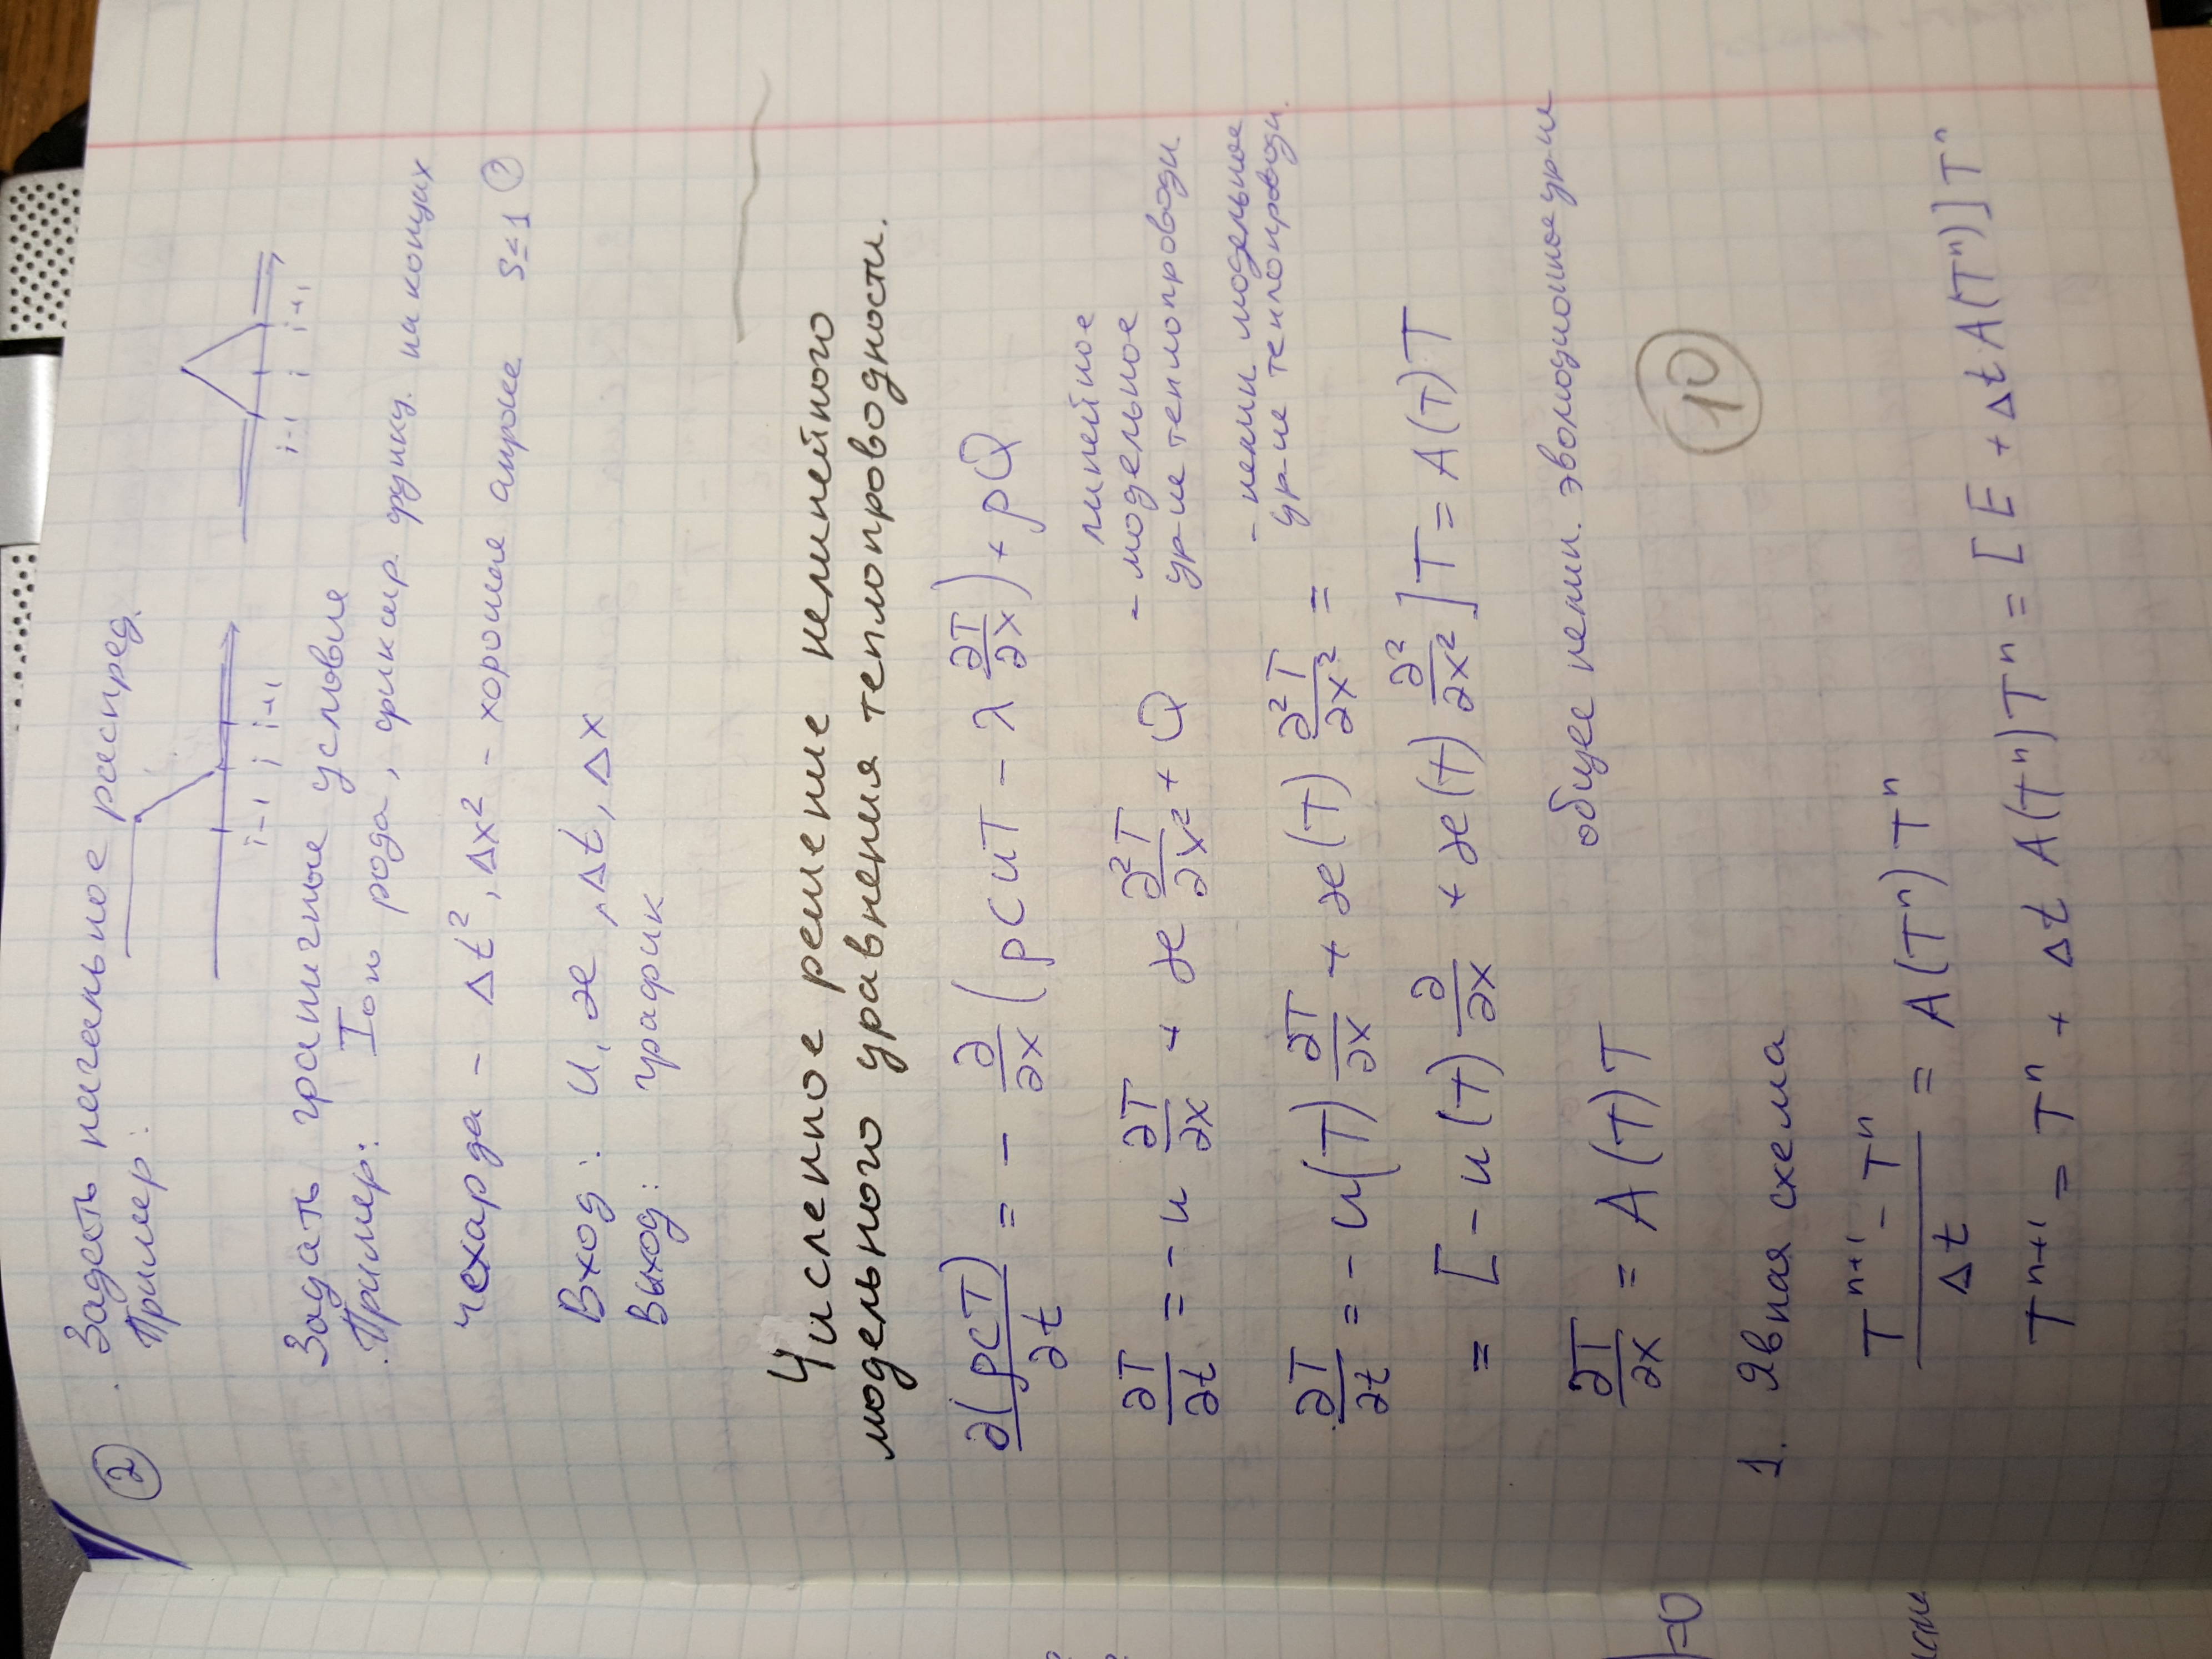 2 Задать начальное распред.
Пример:
i-1 i i+1
i-1 i i+1
Задать граничные условие
Пример: I ого рода, фиксир. функц. на концах
чехарда - Δt², Δx² - хорошая апрокс S≤1 ?
Вход: u, æ, Δt, Δx
Выход: график
Численное решение нелинейного
модельного уравнения теплопроводности.
∂(ρcT)/∂t = - ∂/∂x (ρcuT - λ ∂T/∂x) + ρQ
∂T/∂t = - u ∂T/∂x + æ ∂²T/∂x² + Q
линейное
- модельное
ур-ие теплопроводн.
- нелин модельное
ур-ие теплопроводн.
∂T/∂t = - u(T) ∂T/∂x + æ(T) ∂²T/∂x² =
= [- u(T) ∂/∂x + æ(T) ∂²/∂x²] T = A(T) T
∂T/∂x = A(T) T общее нелин. эволюционное ур-ие
10
1. Явная схема
(Tⁿ⁺¹ - Tⁿ)/Δt = A(Tⁿ) Tⁿ
Tⁿ⁺¹ = Tⁿ + Δt A(Tⁿ) Tⁿ = [E + Δt A(Tⁿ)] Tⁿ
=0